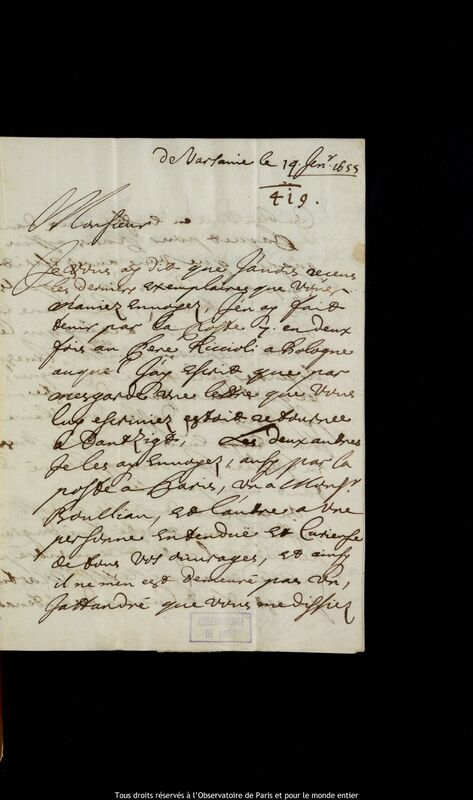 de Varsavie le 19. Jenr. 1655
419.
Monsieur
Je vous ay dit que J'avois receus
les derniers exemplaires que vous
m'aviez Envoyez, J'en ay fait
tenir par la poste 2. en deux
fois au Pere Riccioli a Bologne
auquel J'ay escrit que par
mesgarde une lettre que vous
luy escriviez estoit retournee
a Dantzigt, Les deux autres
Je les ay Envoyez, aussy par la
poste a Paris, un a Monsr.
Boulliau, et l'autre a une
personne Entenduë et Curieuse
de tous vos ouvrages, et ainsy
il ne m'en est demeuré pas un,
J'attandré que vous me dissiez
OBSERVATOIRE
DE PARIS
Tous droits réservés à l'Observatoire de Paris et pour le monde entier